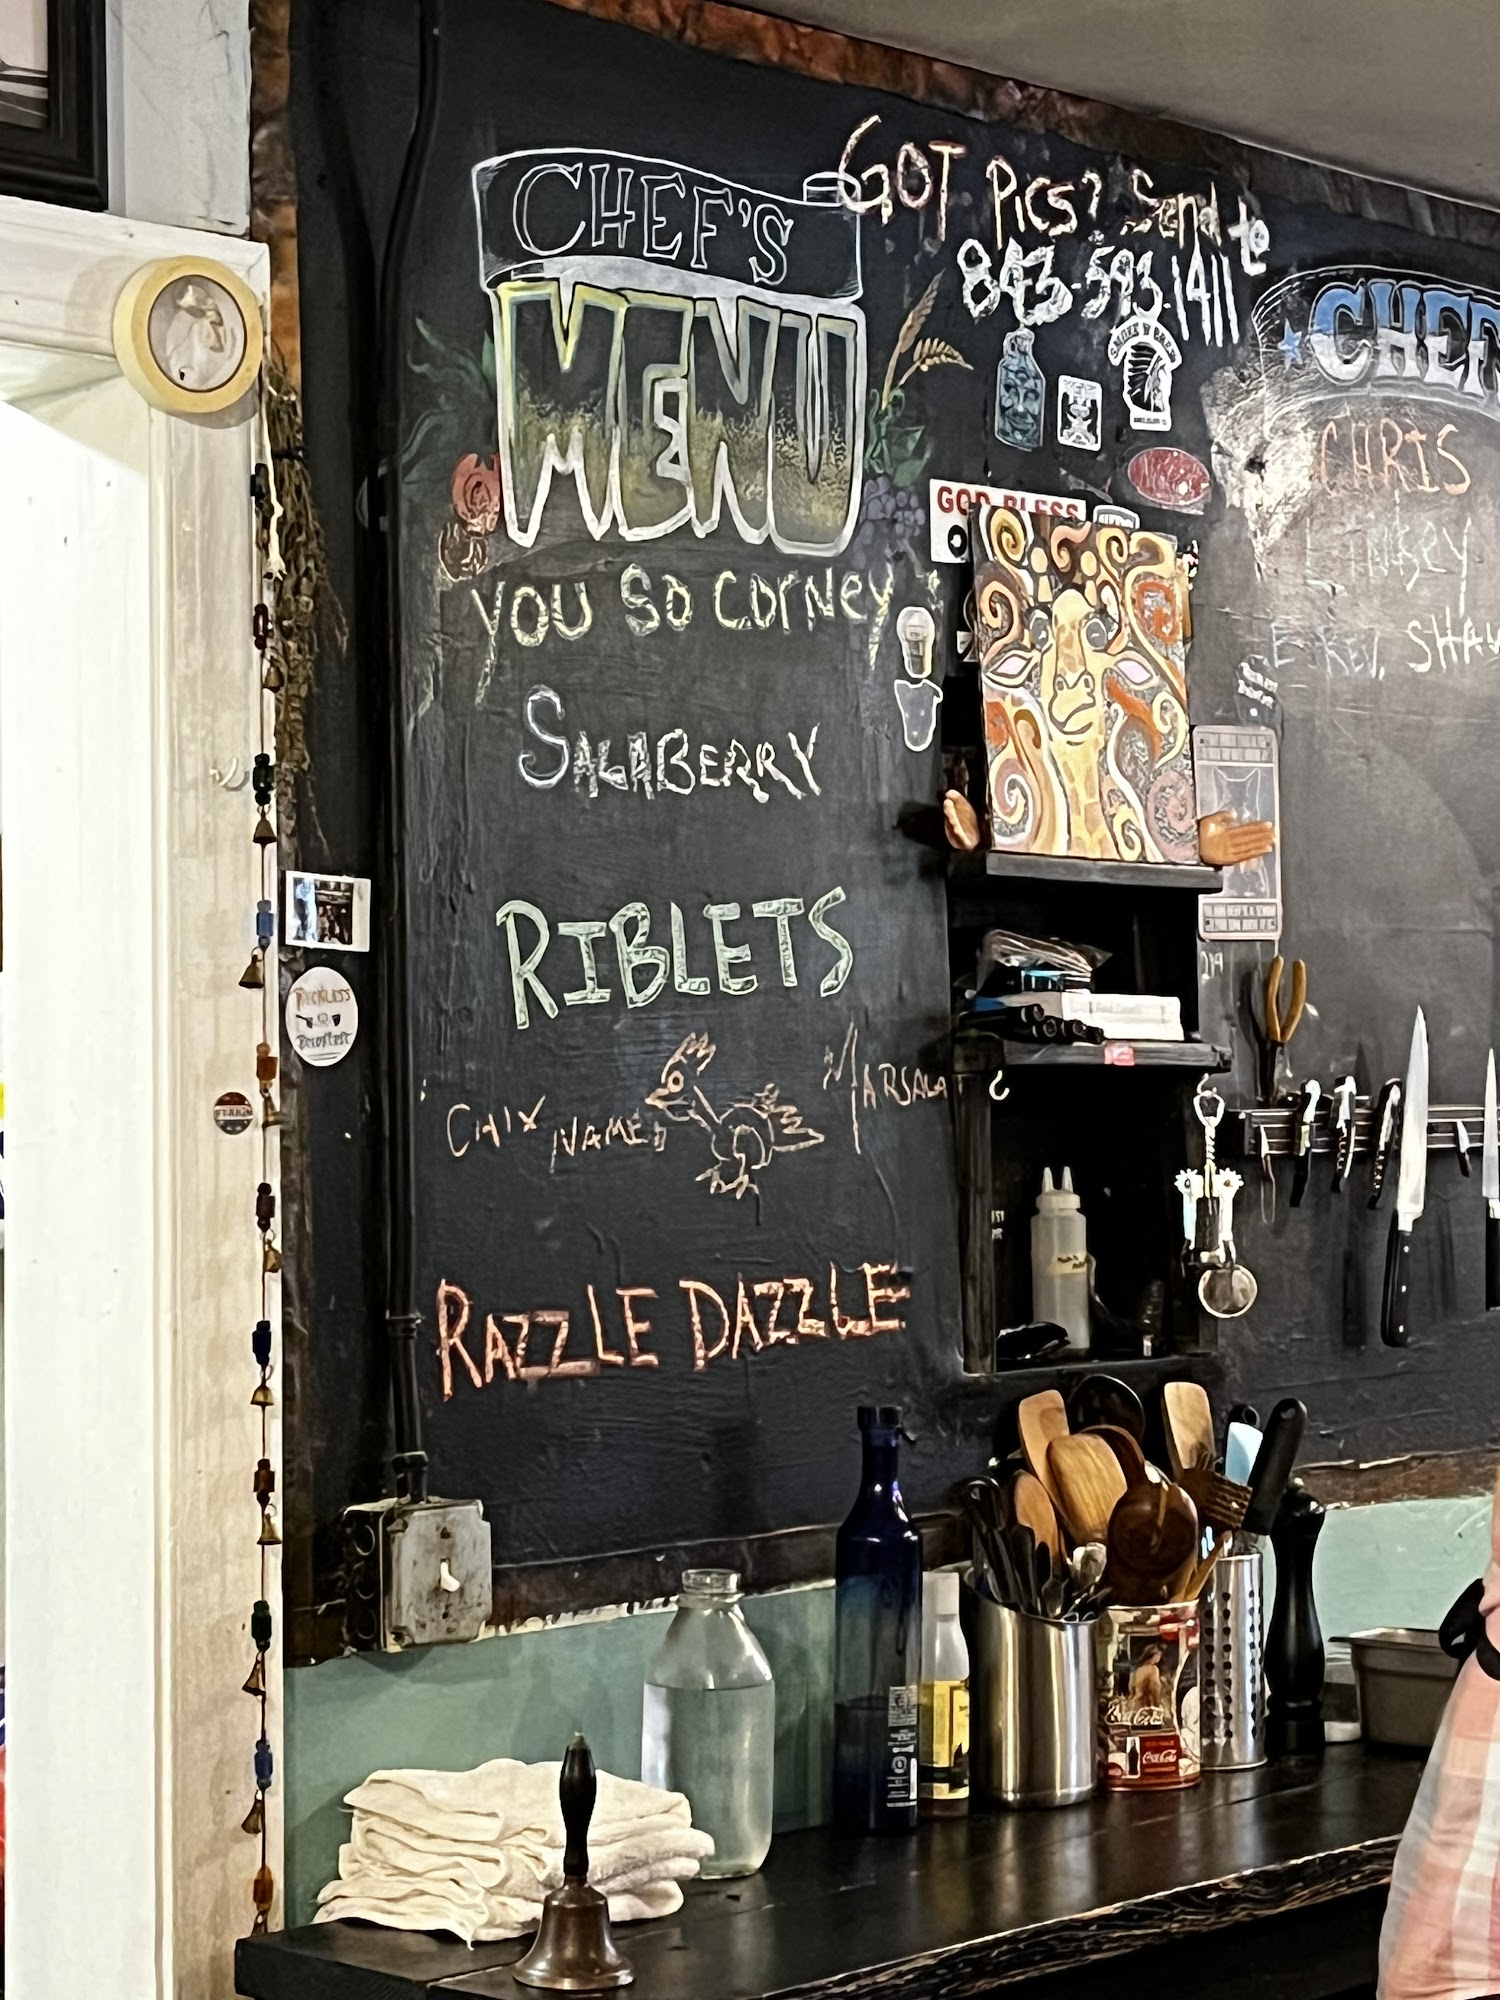 CHEF'S
MENU
YOU SO CORNEY
SALABERRY
RIBLETS
CHIX NAMED MARSALA
RAZZLE DAZZLE
GOT PICS? Send to
843-593-1411
SMOKE N GREEN
GOD BLESS
CHEF
CHRIS
LINDSEY
REV. SHAW
RECKLESS
Breakfast
Coca-Cola
Coca-Cola